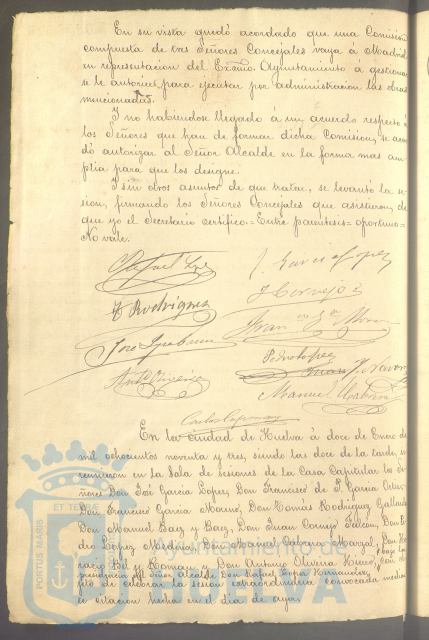 En su vista quedó acordado que una Comisión
compuesta de tres Señores Concejales vaya á Madrid
en representacion del Excmo. Ayuntamiento á gestionar
se le autorice para ejecutar por administracion las obras
mencionadas.
Y no habiendose llegado á un acuerdo respecto á
los Señores que han de formar dicha Comision, se acor
dó autorizar al Señor Alcalde en la forma mas am-
plia para que los designe.
Y sin otros asuntos de que tratar, se levantó la se-
sion, firmando los Señores Concejales que asistieron, de
que yo el Secretario certifico.=Entre parentesis=oportuno=
No vale.
Rafael J. Garcia Lopez
Rodriguez J Cornejo
José Fran co Ga Moreno
Pedro Lopez
Antº Oliveira Juan J. Navarro
Manuel Cabana
Carlos
En la Ciudad de Huelva á doce de Enero de
mil ochocientos noventa y tres, siendo las doce de la tarde, se
reunieron en la Sala de sesiones de la Casa Capitular los Se-
ñores Don José Garcia Lopez, Don Francisco de P. Garcia
Don Francisco Garcia Moreno, Don Tomás Rodriguez Gallardo
Don Manuel Baez y Baez, Don Juan Cornejo Falcon, Don Pe
dro Lopez Medina, Don Manuel Cabana Margal, Don
y Roman y Don Antonio Oliveira bajo la
presidencia del Señor Alcalde Don Rafael Lopez Hernandez
de celebrar la sesion extraordinaria convocada median
te citacion hecha en el dia de ayer.
Ayuntamiento de
HUELVA
PORTUS MARIS
ET TERRE